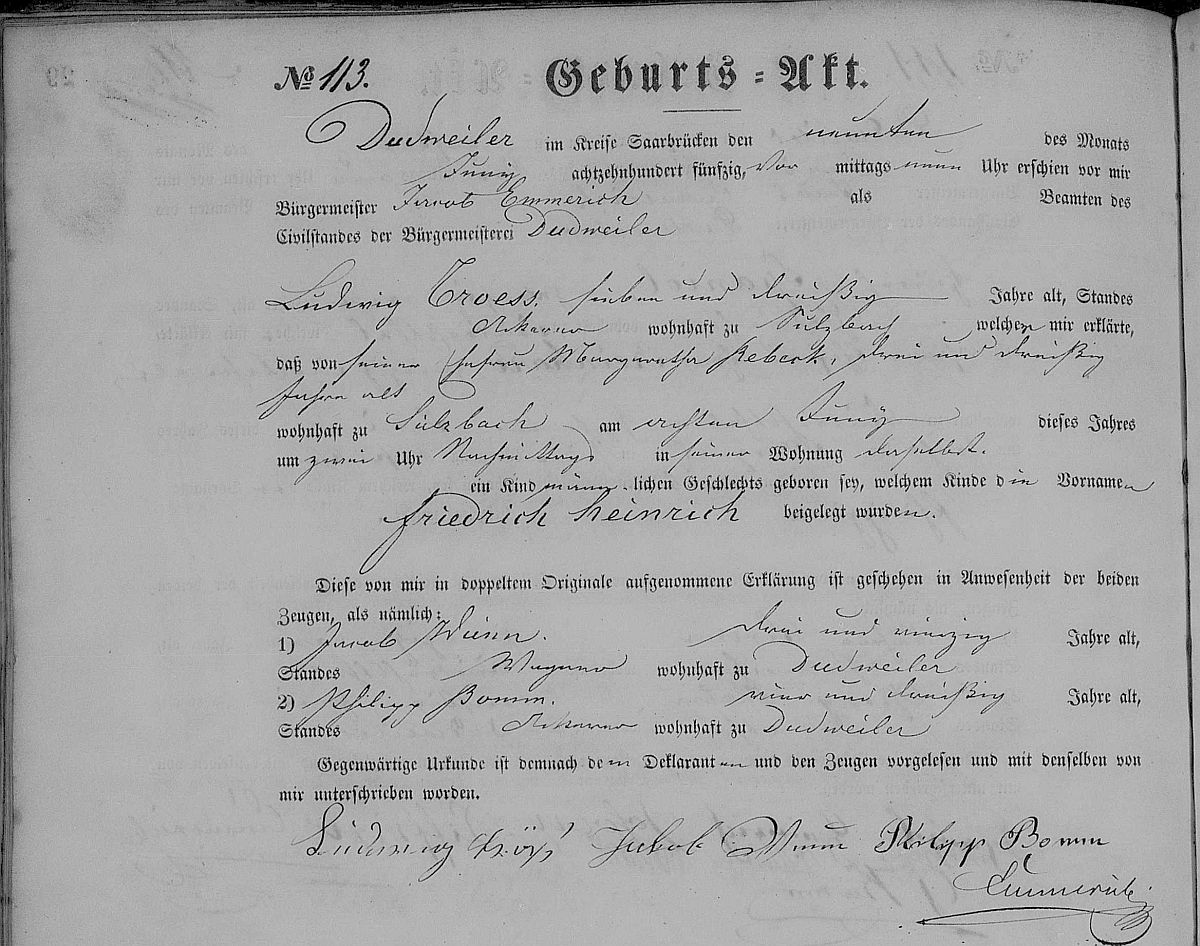 № 113. Geburts-Akt.
Dudweiler im Kreise Saarbrücken den neunten des Monats
Juny achtzehnhundert fünfzig, Vor mittags neun Uhr erschien vor mir
Bürgermeister Jacob Emmerich als Beamten des
Civilstandes der Bürgermeisterei Dudweiler
Ludwig Troess, sieben und dreißig Jahre alt, Standes
Akerer wohnhaft zu Sulzbach welcher mir erklärte,
daß von seiner Ehefrau Margaretha Rebeck, drei und dreißig
Jahre alt
wohnhaft zu Sulzbach am achten Juny dieses Jahres
um zwei Uhr Nachmittags in seiner Wohnung daselbst.
ein Kind männ-lichen Geschlechts geboren sey, welchem Kinde die Vornamen
Friedrich Heinrich beigelegt wurden.
Diese von mir in doppeltem Originale aufgenommene Erklärung ist geschehen in Anwesenheit der beiden
Zeugen, als nämlich:
1) Jacob Wunn. drei und vierzig Jahre alt,
Standes Wagner wohnhaft zu Dudweiler
2) Philipp Bomm. vier und dreißig Jahre alt,
Standes Akerer wohnhaft zu Dudweiler
Gegenwärtige Urkunde ist demnach dem Deklaranten und den Zeugen vorgelesen und mit denselben von
mir unterschrieben worden.
Ludwig Tröß Jakob Wunn Philipp Bomm
Emmerich